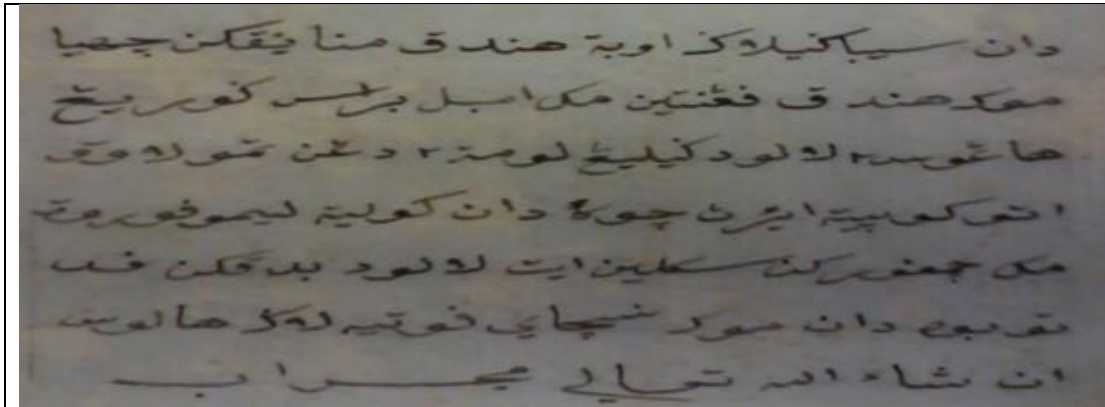 دان سباكيلاك اوبة هندق منايقكن چهيا
موك هندق ڤڠنتين مك امبل برس كوريڠ
هاڠوس٢ لالود كيليڠ لومة٢ دڠن تمو لاوق
اتو كوميت ايرڽ چوك دان كوليت ليمو ڤوروت
مك چمڤوركن سكلين ايت لالود بدقكن ڤد
توبوه دان موك نسچاي ڤوتيه لاك هالوس
ان شاء الله تعالى مجراب